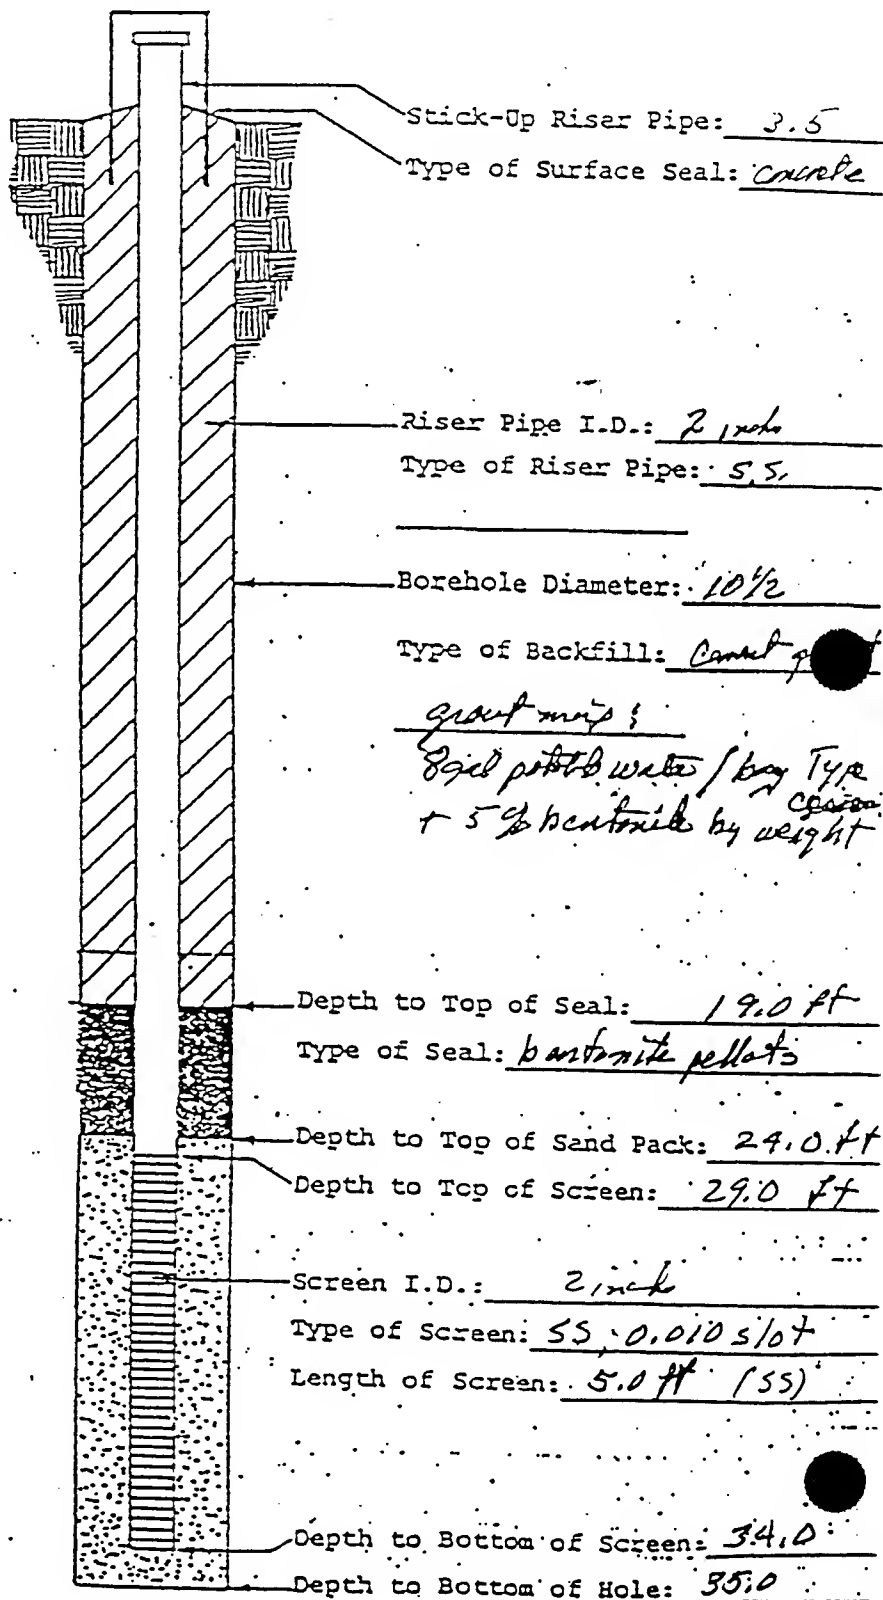 Stick-Up Riser Pipe: 3.5
Type of Surface Seal: concrete
Riser Pipe I.D.: 2 inch
Type of Riser Pipe: S.S.
Borehole Diameter: 10 1/2
Type of Backfill: Cement
grout mix:
8 gal potable water / bag Type
+ 5% bentonite by weight
Depth to Top of Seal: 19.0 ft
Type of Seal: bentonite pellets
Depth to Top of Sand Pack: 24.0 ft
Depth to Top of Screen: 29.0 ft
Screen I.D.: 2 inch
Type of Screen: SS, 0.010 slot
Length of Screen: 5.0 ft (SS)
Depth to Bottom of Screen: 34.0
Depth to Bottom of Hole: 35.0